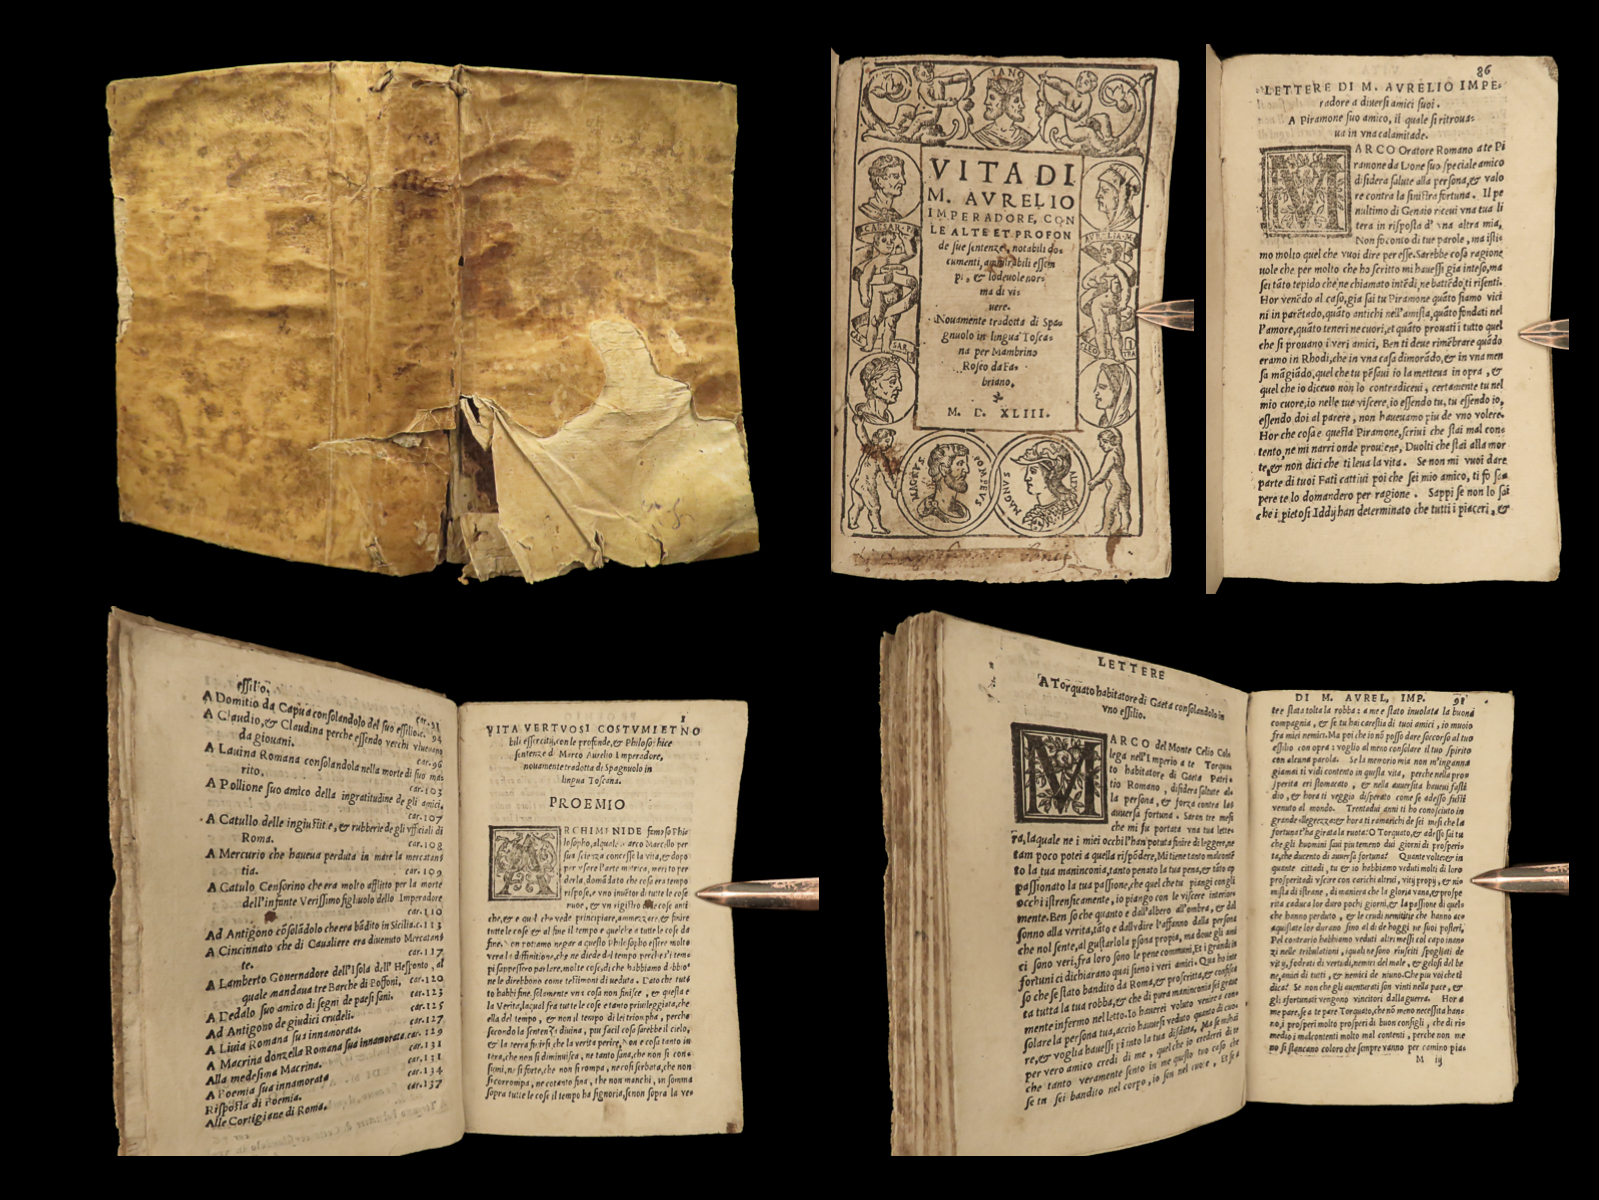 IANO
CAESAR
AVRELIA
CAE
SAR
CLEO
TRA
VITA DI
M. AVRELIO
IMPERADORE, CON
LE ALTE ET PROFON
de sue sentenze, notabili do-
cumenti, ammirabili essem
pi, & lodeuole nor-
ma di vi-
uere.
Nouamente tradotta di Spa-
gnuolo in lingua Tosca-
na per Mambrino
Roseo da Fa-
briano.
M. D. XLIII.
MAGNVS POMPEVS
MAGNVS ALEX
86
LETTERE DI M. AVRELIO IMPE-
radore a diuersi amici suoi.
A Piramone suo amico, il quale si ritroua-
ua in vna calamitade.
MARCO Oratore Romano a te Pi
ramone da Lione suo speciale amico
disidera salute alla persona, & valo
re contra la sinistra fortuna. Il pe
nultimo di Genaio riceui vna tua li
tera in risposta d'vna altra mia,
Non fo conto di tue parole, ma isti-
mo molto quel che vuoi dire per esse. Sarebbe cosa ragione
uole che per molto che ho scritto mi hauessi gia inteso, ma
sei tãto tepido che ne chiamato intẽdi, ne battẽdo ti risenti.
Hor venẽdo al caso, gia sai tu Piramone quãto siamo vici
ni in parẽtado, quãto antichi nell'amistà, quãto fondati nel
l'amore, quãto teneri ne cuori, et quãto prouati i tutto quel
che si prouano i veri amici, Ben ti deue rimẽbrare quãdo
eramo in Rhodi, che in vna casa dimorãdo, & in vna men
sa mãgiãdo, quel che tu pẽsaui io la metteua in opra, &
quel che io diceuo non lo contradiceui, certamente tu nel
mio cuore, io nelle tue viscere, io essendo tu, tu essendo io,
essendo doi al parere, non haueuamo piu de vno volere.
Hor che cosa e questa Piramone, scriui che stai mal con-
tento, ne mi narri onde prouiene, Duolti che stai alla mor
te, & non dici chi ti leua la vita. Se non mi vuoi dare
parte di tuoi Fati cattiui poi che sei mio amico, ti fo sa-
pere te lo domandero per ragione. Sappi se non lo sai
che i pietosi Iddij han determinato che tutti i piaceri, &
essilio.
A Domitio da Capua consolandolo del suo essilio. c. 91
A Claudio, & Claudina perche essendo vecchi viueuano
da giouani. car. 94
A Lauina Romana consolandola nella morte di suo ma-
rito. car. 96
A Pollione suo amico della ingratitudine de gli amici,
car. 103
A Catullo delle ingiustitie, & rubberie de gli vfficiali di
Roma. car. 107
A Mercurio che haueua perduta in mare la mercatan-
tia. car. 108
A Catulo Censorino che era molto afflitto per la morte
dell'infante Verissimo figliuolo dello Imperadore
car. 110
Ad Antigono cõsolãdolo che era bãdito in Sicilia. c. 113
A Cincinnato che di Caualiere era diuenuto Mercatan-
te. car. 117
A Lamberto Gouernadore dell'Isola dell'Hesponto, al
quale mandaua tre Barche di Boffoni. car. 120
A Dedalo suo amico di segni de paesi sani. car. 123
Ad Antigono de giudici crudeli. car. 125
A Liuia Romana sua innamorata. car. 127
A Macrina donzella Romana sua innamorata. car. 129
Alla medesima Macrina. car. 131
A Boemia sua innamorata car. 131
Risposta di Boemia. car. 134
Alle Cortigiane di Roma. car. 137
1
VITA VERTVOSI COSTVMI ET NO
bili essercitij, con le profonde, & Philosophice
sentenze di Marco Aurelio Imperadore,
nouamente tradotta di Spagnuolo in
lingua Toscana.
PROEMIO
ARCHIMENIDE famoso Phi-
losopho, al quale Marco Marcello per
sua scienza concesse la vita, & dopo
per vsare l'arte magica, merito per
derla, domãdato che cosa era tempo
rispose, e vn inuẽtor di tutte le cose
nuoue, & vn registro delle cose anti
che, & e quel che vede principiare, ammezzare, & finire
tutte le cose & al fine il tempo e quel che a tutte le cose da
fine. Non potiamo negar a questo Philosopho essere molto
vera la diffinitione, che ne diede del tempo, perche s'i tem-
pi sapessero parlare, molte cose, di che habbiamo dubbio
ne le direbbono come testimoni di veduta. Dato che tut-
to habbi fine, solamente vna cosa non finisce, & questa e
la Verità, la qual fra tutte le cose e tanto priuileggiata, che
ella del tempo, & non il tempo di lei triompha, perche
secondo la sentenza diuina, piu facil cosa sarebbe il cielo,
& la terra finirsi, che la verita perire, Non e cosa tanto in
tera, che non si diminuisca, ne tanto sana, che non si con-
sumi, ne si forte, che non si rompa, ne cosi serbata, che non
si corrompa, ne cotanto fina, che non manchi, in somma
sopra tutte le cose il tempo ha signoria, senon sopra la ve-
LETTERE
A Torquato habitatore di Gaeta consolandolo in
vno essilio.
MARCO del Monte Celio Col-
lega nell'Imperio a te Torqua-
to habitatore di Gaeta Patri-
tio Romano, disidera salute al-
la persona, & forza contra la
auuersa fortuna. Saran tre mesi
che mi fu portata vna tua lette-
ra, la quale ne i miei occhi l'han potuta finire di leggere, ne
tam poco potei a quella rispõdere, Mi tiene tanto malcontẽ
to la tua maninconia, tanto penato la tua pena, & tãto ap
passionato la tua passione, che quel che tu piangi con gli
occhi istrenficamente, io piango con le viscere interior
mente. Ben so che quanto e dall'albero all'ombra, & dal
sonno alla verità, tãto e dall'vdire l'affanno dalla persona
che nol sente, al gustarlo la psona propia, ma doue gli ami
ci sono veri, fra loro sono le pene communi, Et i grandi in
fortuni ci dichiarano quai sieno i veri amici. Qua ho inte
so che se stato bandito da Roma, & proscritta, & confisca
ta tutta la tua robba, & che di pura maninconia sei graue
mente infermo nel letto. Io hauerei voluto venire a con-
solare la persona tua, accio hauessi veduto quanto di cuo-
re, & voglia hauessi pianto la tua disdetta, Ma se mi hai
per vero amico credi di me, quel che io crederei di te
che tanto veramente sento in me questo tuo caso che
se tu sei bandito nel corpo, io son nel cuore, Et se a
DI M. AVREL. IMP. 91
te e stato tolta la robba: a me e stato inuolata la buona
compagnia, & se tu hai carestia di tuoi amici, io muoio
fra miei nemici. Ma poi che io nõ posso dare soccorso al tuo
essilio con opra: voglio al meno consolare il tuo spirito
con alcuna parola. Se la memoria mia non m'inganna
giamai ti vidi contento in questa vita, perche nella pros
sperita eri stomacato, & nella auuersita haueui fasti
dio, & hora ti veggio disperato come se adesso fussi
venuto al mondo. Trentadui anni ti ho conosciuto in
grande allegrezza: & hora ti ramarichi de sei mesi che la
fortuna t'ha girata la ruota: O Torquato, & adesso sai tu
che gli huomini saui piu temeno dui giorni di prosperi-
ta, che ducento di auuersa fortuna? Quante volte: & in
quante cittadi, tu & io habbiamo veduti molti di loro
prosperitadi vscire con carichi altrui, vitij propij, & nio
mista di istrane, di maniera che la gloria vana, & prospe
rita caduca lor duro pochi giorni, & la passione di quel
che hanno perduto, & le crudi nemistitie che hanno ac
quistate lor durano sino al di de hoggi ne suoi posteri,
Pel contrario habbiamo veduti altri messi col capo inan
zi nelle tribulationi, i quali ne sono riusciti spogliati de
vitij, fodrati di vertudi, nemici del male, & gelosi del be
ne, amici di tutti, & nemici de niuno. Che piu voi che ti
dica? Se non che gli auenturati son vinti nella pace, &
gli sfortunati vengono vincitori dalla guerra. Hor a
me pare, se a te pare Torquato, che nõ meno necessita han-
no, i prosperi molto prosperi di buon consigli, che di ri-
medio i malcontenti molto mal contenti, perche non me
no si stancano coloro che sempre vanno per camino pia-
M iij